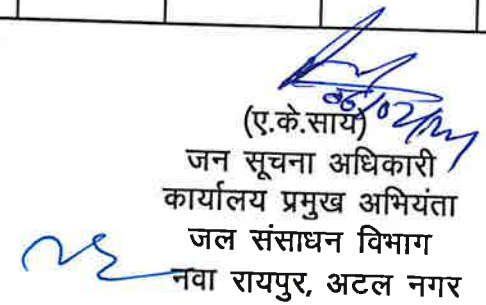 (ए.के.साय)
जन सूचना अधिकारी
कार्यालय प्रमुख अभियंता
जल संसाधन विभाग
नवा रायपुर, अटल नगर